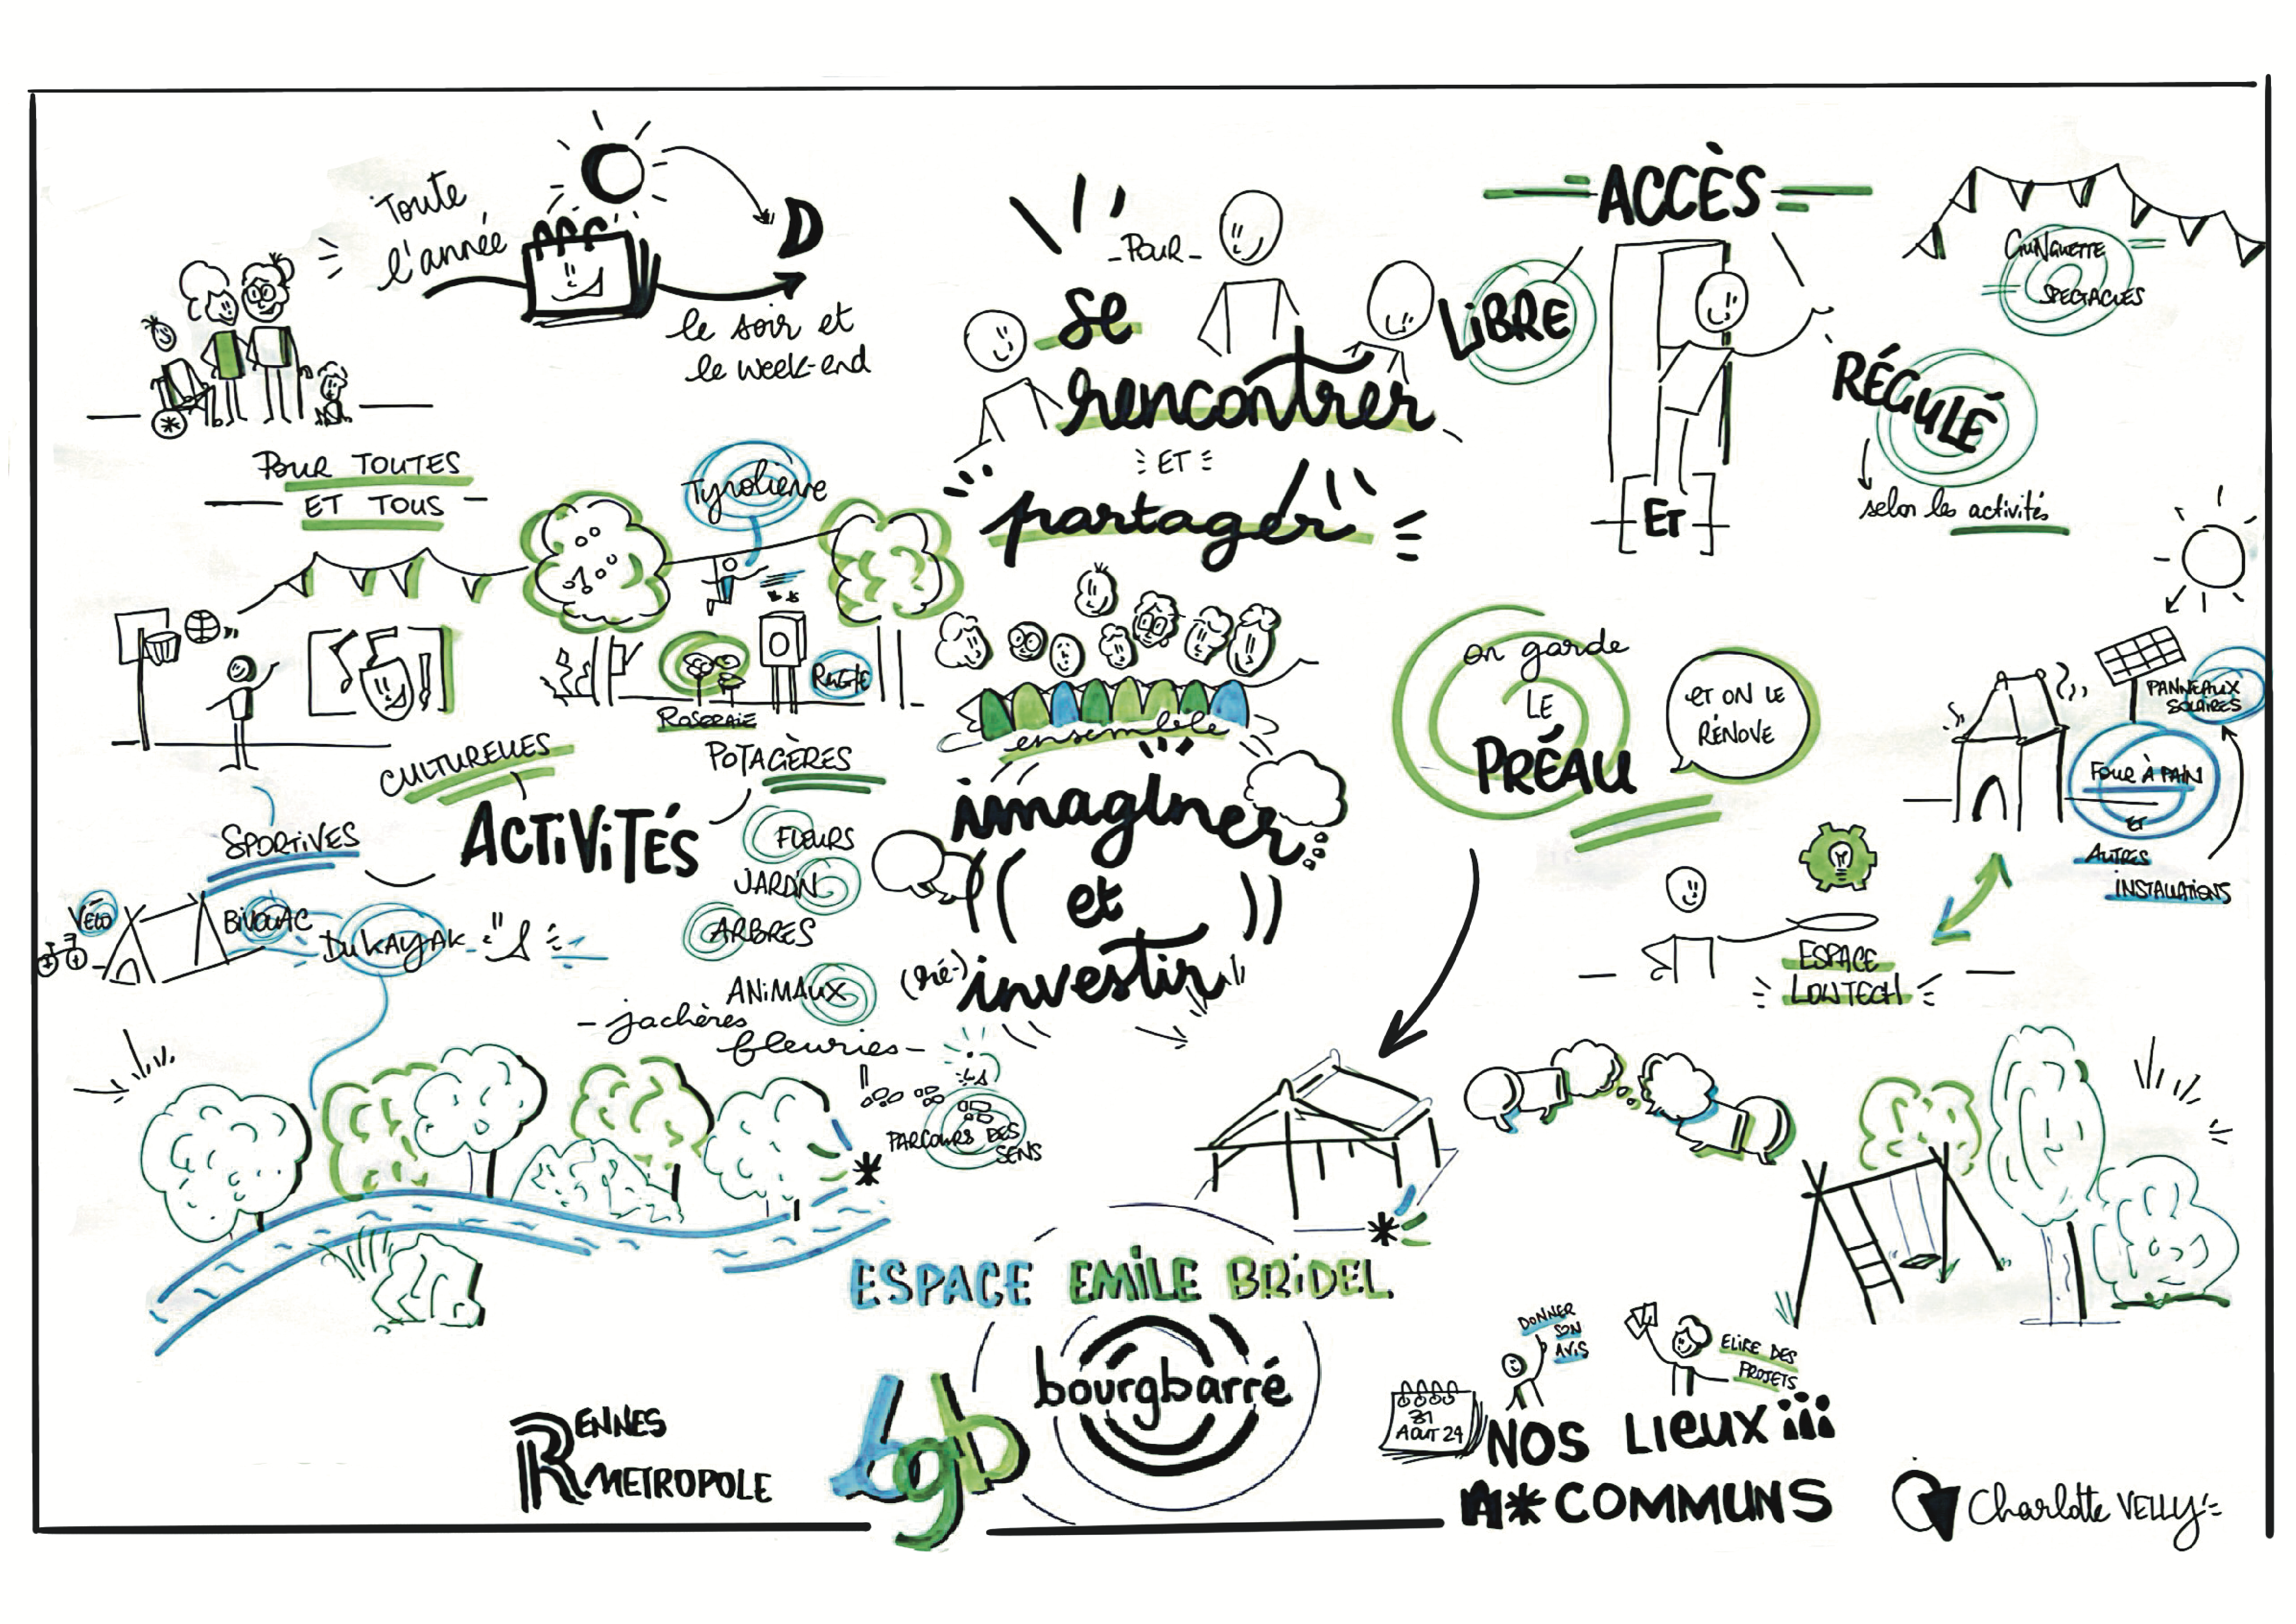 Toute
l'année
D
le soir et
le week-end
POUR TOUTES
ET TOUS
- POUR -
se
rencontrer
ET
partager
ensemble
imaginer
et
(ré-) investir
ACCÈS
LIBRE
ET
RÉGULÉ
selon les activités
GUINGUETTE
SPECTACLES
Tyrolienne
ROSERAIE
RUCHE
CULTURELLES
POTAGÈRES
SPORTIVES
ACTIVITÉS
FLEURS
JARDIN
ARBRES
ANIMAUX
- jachères
fleuries -
VÉLO
BIVOUAC
DU KAYAK
PARCOURS DES
SENS
on garde
LE
PRÉAU
ET ON LE
RÉNOVE
PANNEAUX
SOLAIRES
FOUR À PAIN
ET
AUTRES
INSTALLATIONS
ESPACE
LOWTECH
ESPACE EMILE BRIDEL
bourgbarré
bgb
RENNES
METROPOLE
DONNER
SON
AVIS
ELIRE DES
PROJETS
31
AOUT 24
NOS LIEUX
COMMUNS
Charlotte VELLY